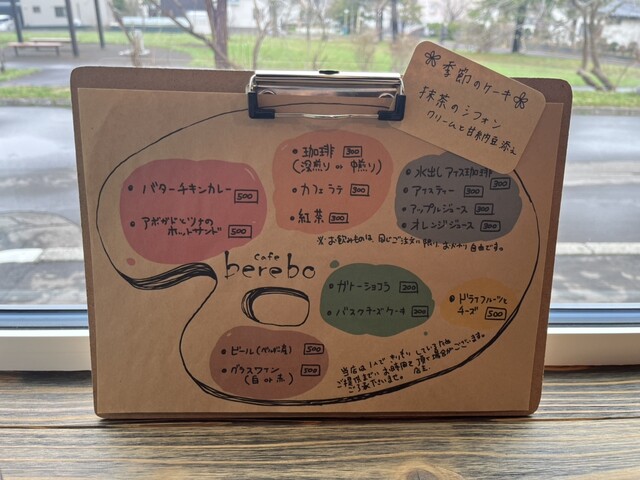 季節のケーキ
抹茶のシフォン
クリームと甘納豆添え
・バターチキンカレー 500
・アボガドとツナの
ホットサンド 500
・珈琲 300
(深煎り or 中煎り)
・カフェラテ 300
・紅茶 300
・水出しアイス珈琲 300
・アイスティー 300
・アップルジュース 300
・オレンジジュース 300
※お飲みものは、同じご注文に限りおかわり自由です。
cafe
berebo
・ガトーショコラ 200
・バスクチーズケーキ 200
・ドライフルーツと
チーズ 500
・ビール 500
・グラスワイン 500
(白 or 赤)
当店は1人で
ご提供までにお時間を頂く場合がございます。
ご了承下さいませ。 店主